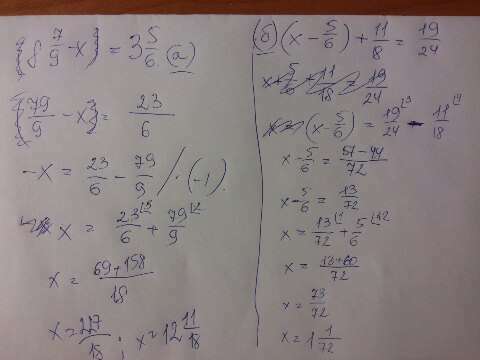 {8 7/9 - x} = 3 5/6 (a)
{79/9 - x} = 23/6
-x = 23/6 - 79/9 / · (-1)
x = 23/6 + 79/9
x = 69+158/18
x = 227/18 ; x = 12 11/18
(б) (x - 5/6) + 11/8 = 19/24
x + 5/6 + 11/18 = 19/24
(x - 5/6) = 19/24 - 11/18
x - 5/6 = 57-44/72
x - 5/6 = 13/72
x = 13/72 + 5/6
x = 13+60/72
x = 73/72
x = 1 1/72